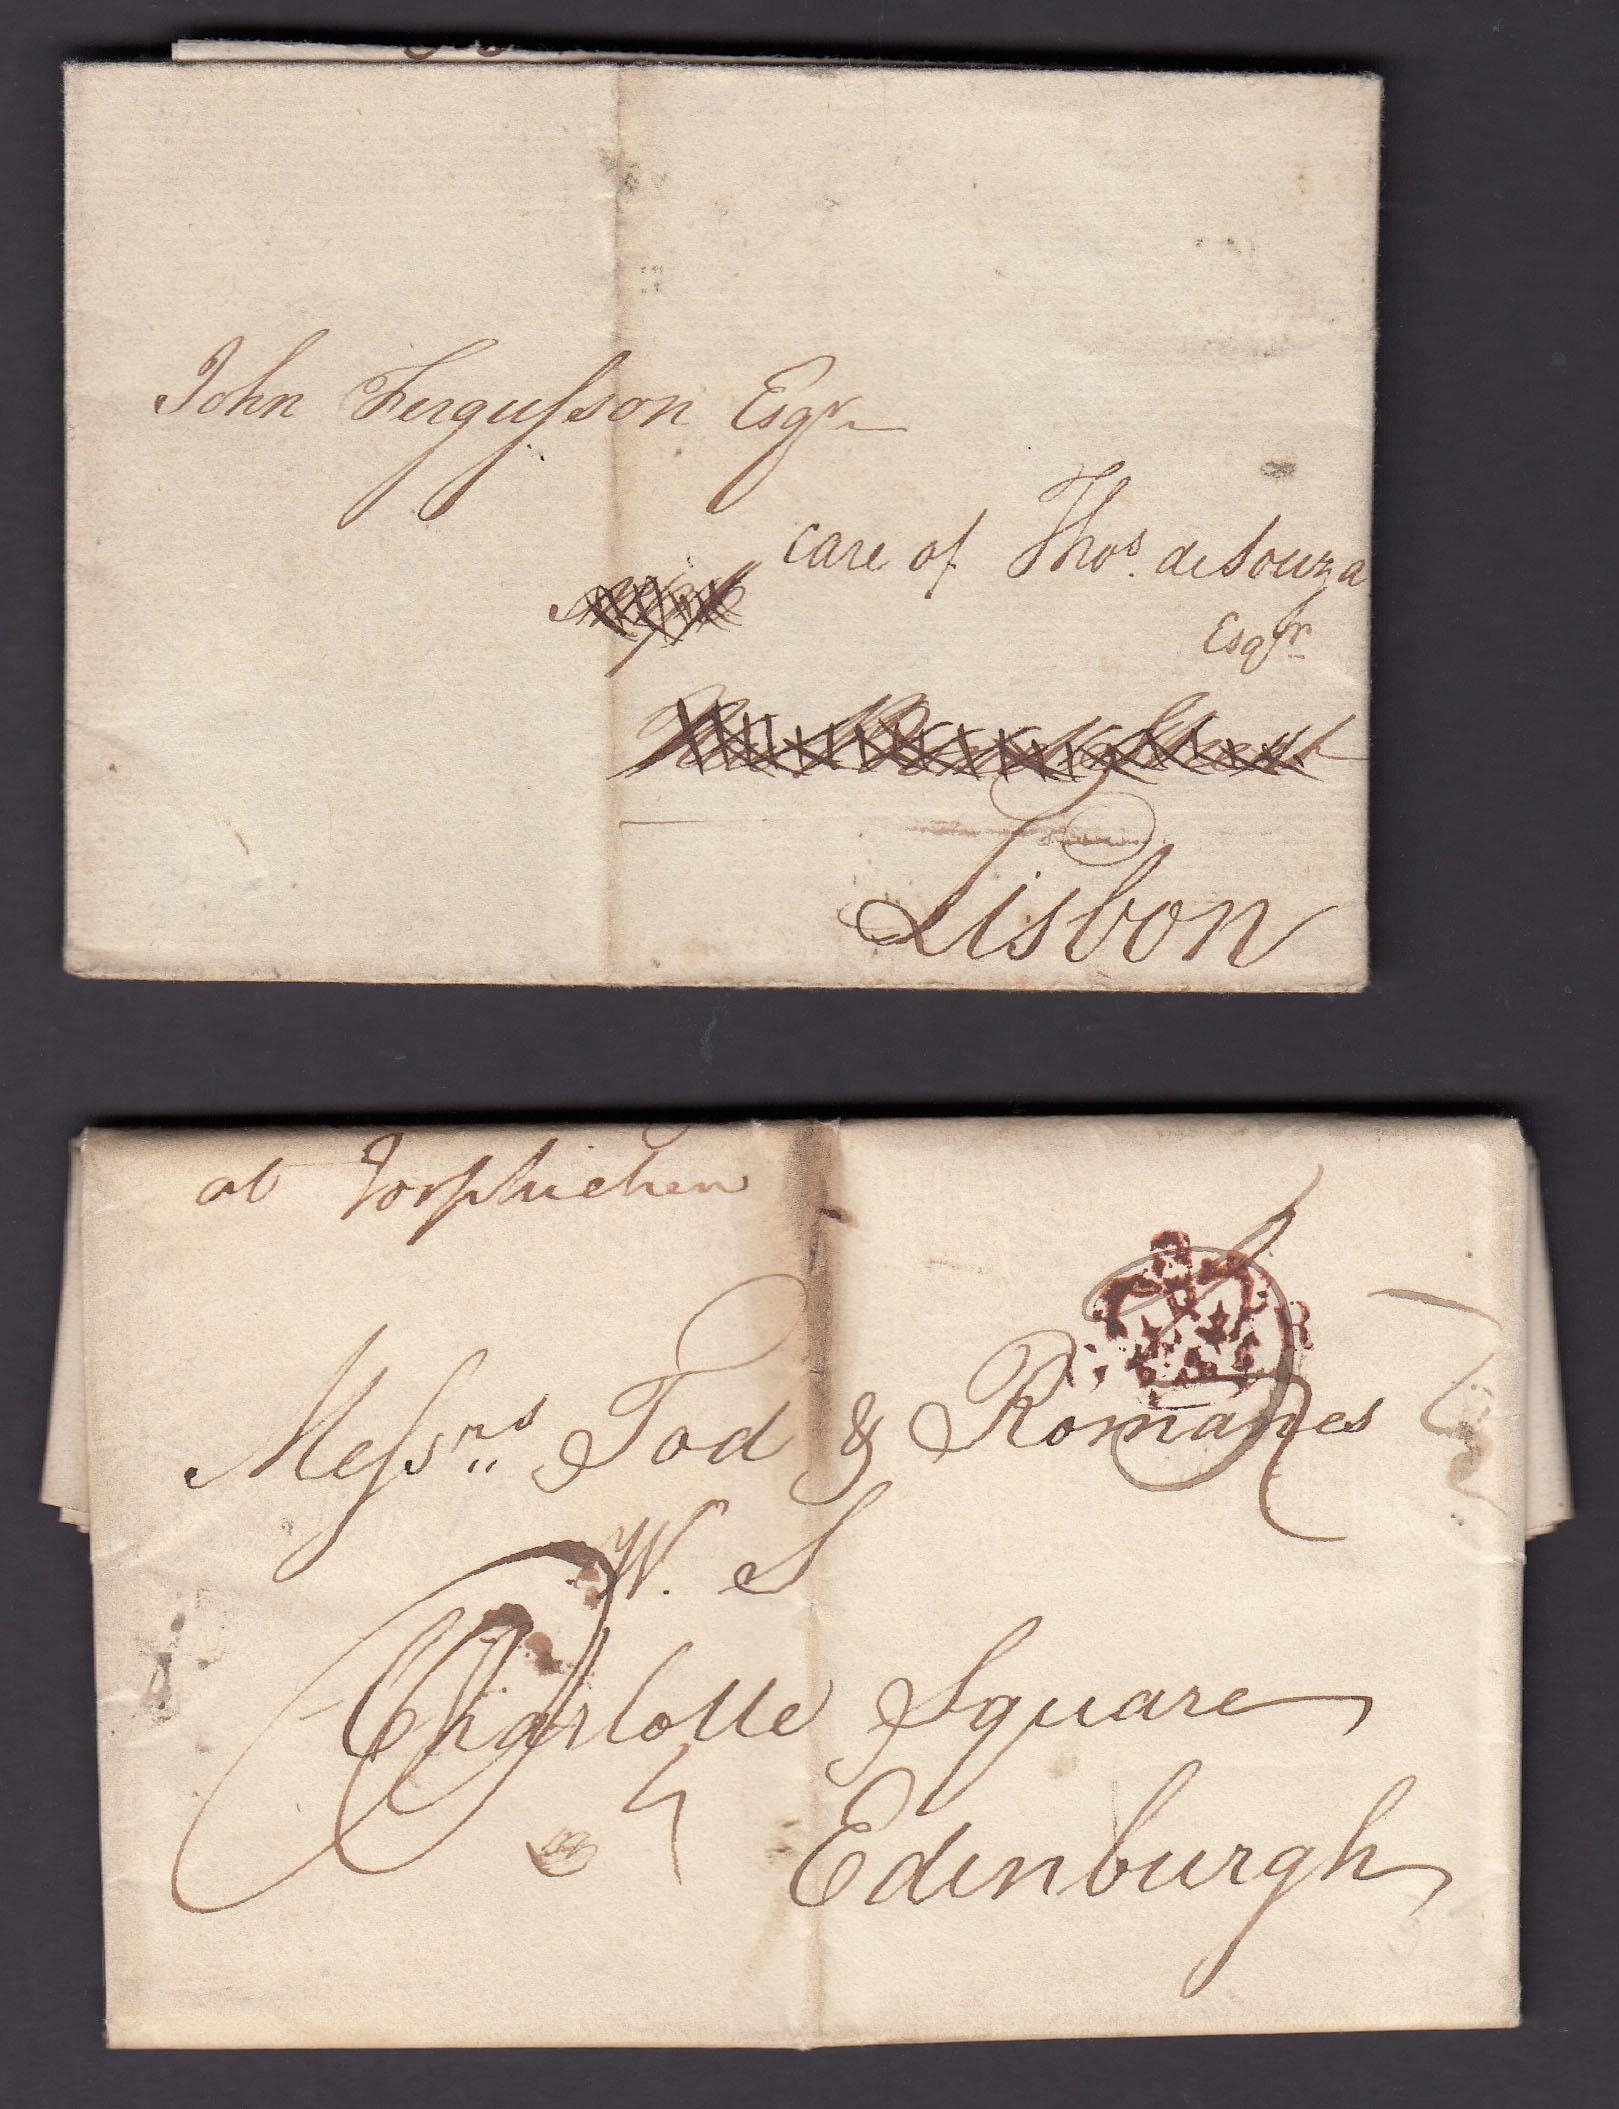 John Fergusson Esqr
care of Thos. de Souza
Esqr
Lisbon
at Torphichen
Messrs Tod & Romanes
W. S
Charlotte Square
Edinburgh